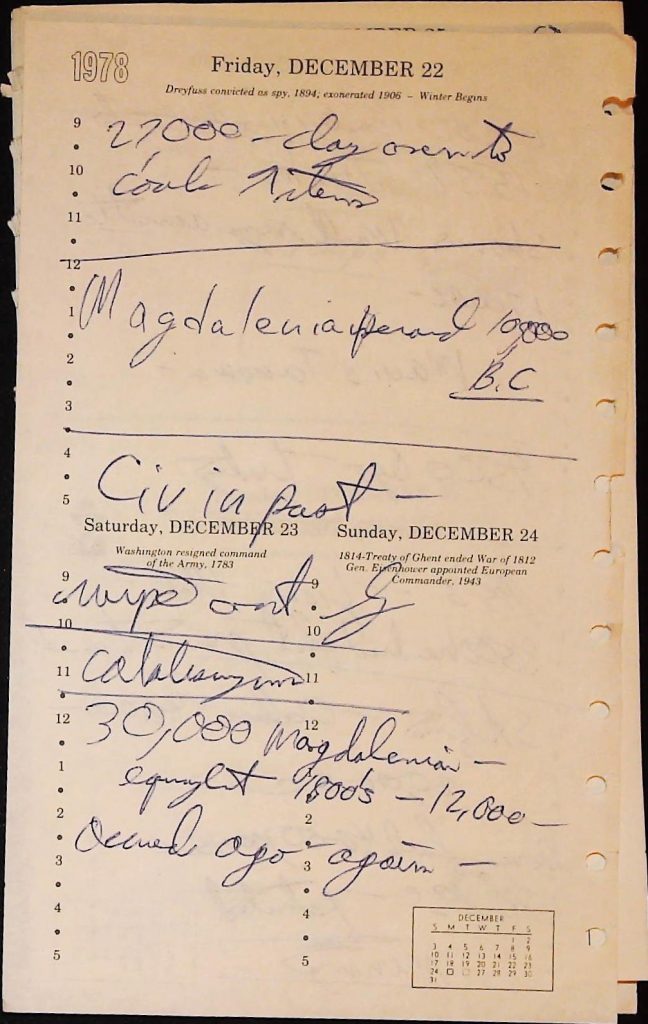 1978
Friday, DECEMBER 22
Dreyfuss convicted as spy, 1894; exonerated 1906 – Winter Begins
9
27000 – clay
10
11
12
Magdalenian period 10,000
1
2
B.C
3
4
Civ in past –
5
Saturday, DECEMBER 23
Sunday, DECEMBER 24
Washington resigned command
of the Army, 1783
1814-Treaty of Ghent ended War of 1812
Gen. Eisenhower appointed European
Commander, 1943
9
9
wiped out by
10
10
11
11
12
12
30,000 Magdalenian –
1
1800's – 12,000 –
2
2
ago again –
3
3
4
4
5
5
DECEMBER
S M T W T F S
1 2
3 4 5 6 7 8 9
10 11 12 13 14 15 16
17 18 19 20 21 22 23
24 27 28 29 30
31